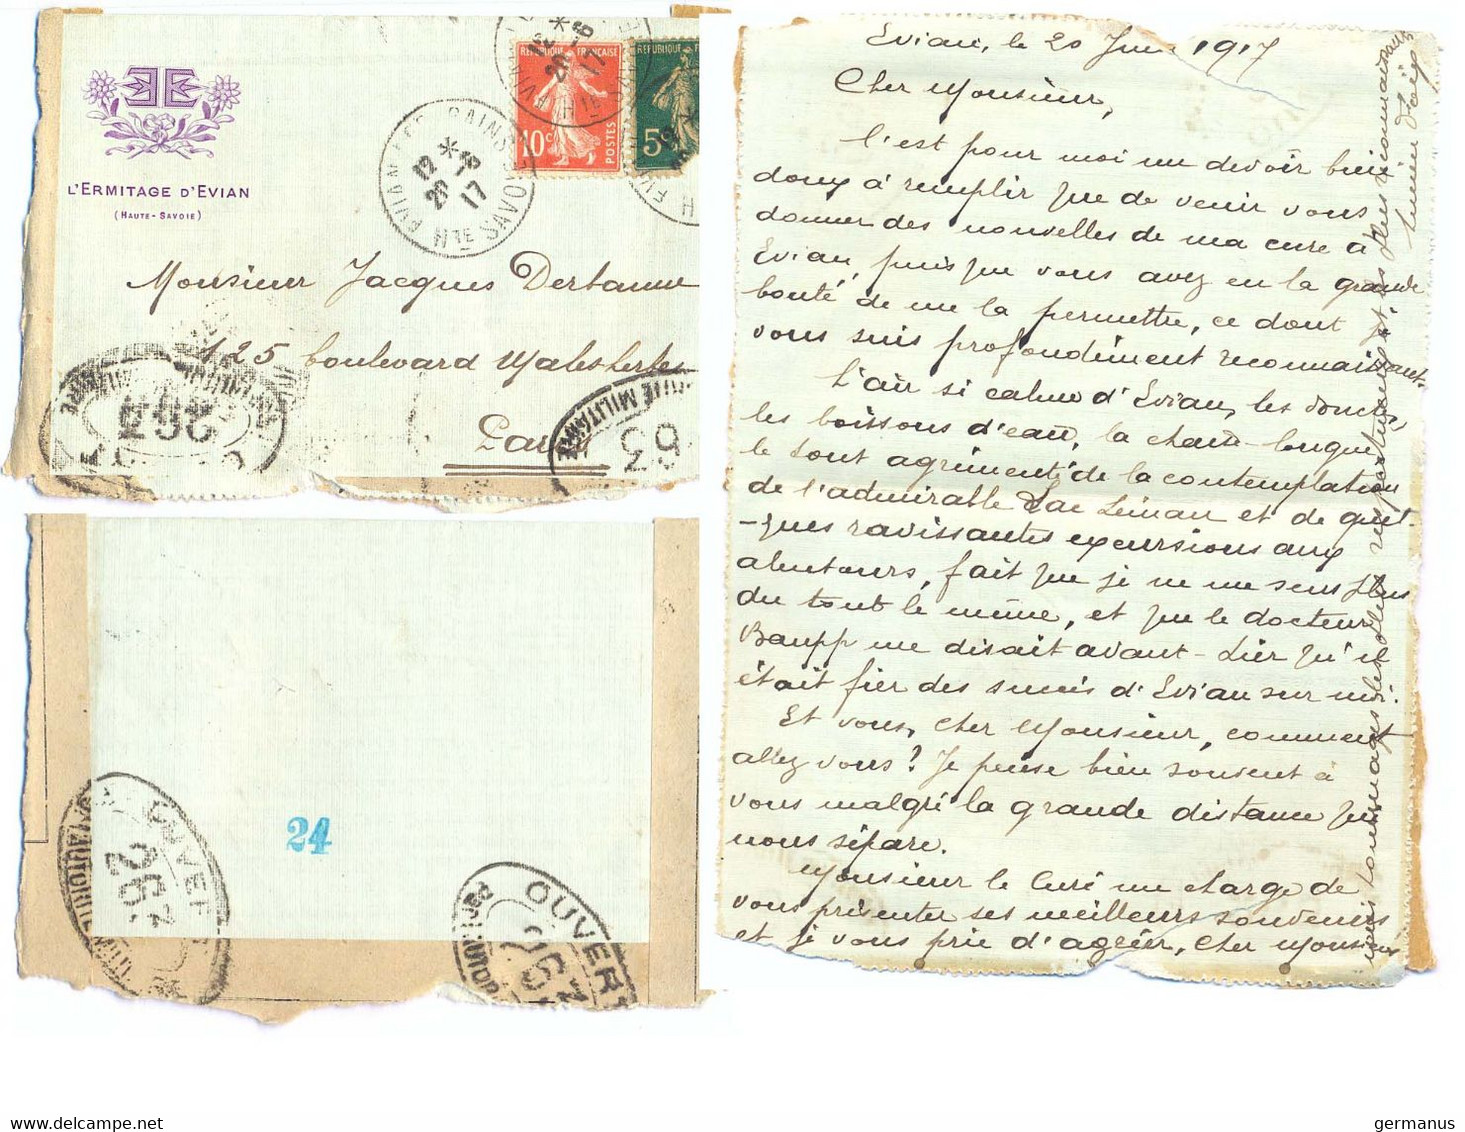 L'ERMITAGE D'EVIAN
(HAUTE-SAVOIE)
REPUBLIQUE FRANÇAISE
10c POSTES
5c
12 * 20 -6 17
HTE SAVOIE
Monsieur Jacques
125 boulevard Malesherbes
Paris
OUVERT
PAR L'AUTORITÉ MILITAIRE
24
OUVERT
Evian, le 20 Juin 1917
Cher Monsieur,
C'est pour moi un devoir bien
doux à remplir que de venir vous
donner des nouvelles de ma cure à
Evian, puisque vous avez eu la grande
bonté de me la permettre, ce dont je
vous suis profondément reconnaissant.
L'air si calme d'Evian, les douches,
les boissons d'eau, la chaise-longue,
le tout agrémenté de la contemplation
de l'admirable Lac Léman et de quel-
-ques ravissantes excursions aux
alentours, fait que je ne me sens plus
du tout le même, et que le docteur
me disait avant-hier qu'il
était fier des succès d'Evian sur moi.
Et vous, cher Monsieur, comment
allez vous? Je pense bien souvent à
vous malgré la grande distance qui
nous sépare.
Monsieur le Curé me charge de
vous présenter ses meilleurs souvenirs
et je vous prie d'agréer, cher Monsieur
mes hommages les plus respectueux et les plus reconnaissants
germanus